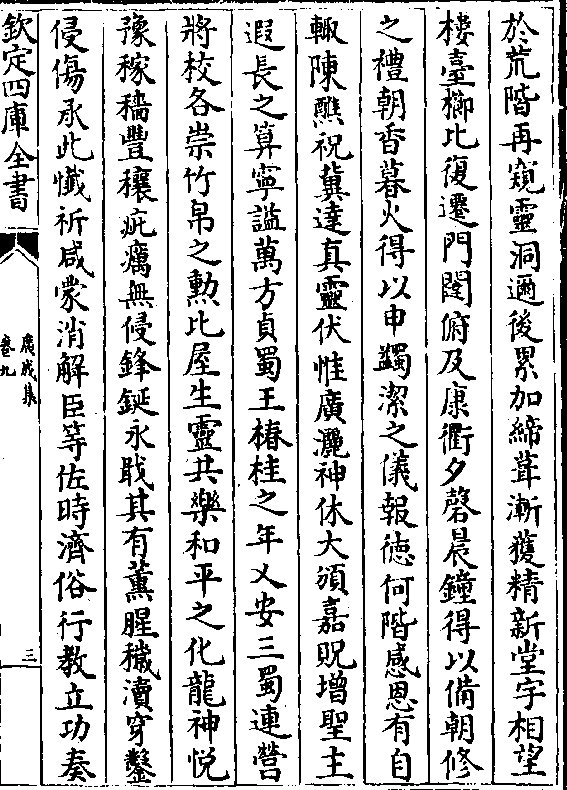 於荒階再窺靈洞邇後累加締葺漸獲精新堂宇相望
樓臺櫛比復遷門閣俯及康衢夕磬晨鐘得以備朝修
之禮朝香暮火得以申蠲潔之儀報徳何階感恩有自
輙陳醮祝冀達真靈伏惟廣灑神休大頒嘉貺增聖主
遐長之算寧謐萬方貞蜀王椿桂之年乂安三蜀連營
將校各崇竹帛之勲比屋生靈共樂和平之化龍神悦
豫稼穡豐穰疵癘無侵鋒鋋永戢其有薰腥穢瀆穿鑿
侵傷承此懺祈咸蒙消解臣等佐時濟俗行教立功奏
欽定四庫全書
廣成集
卷九
三